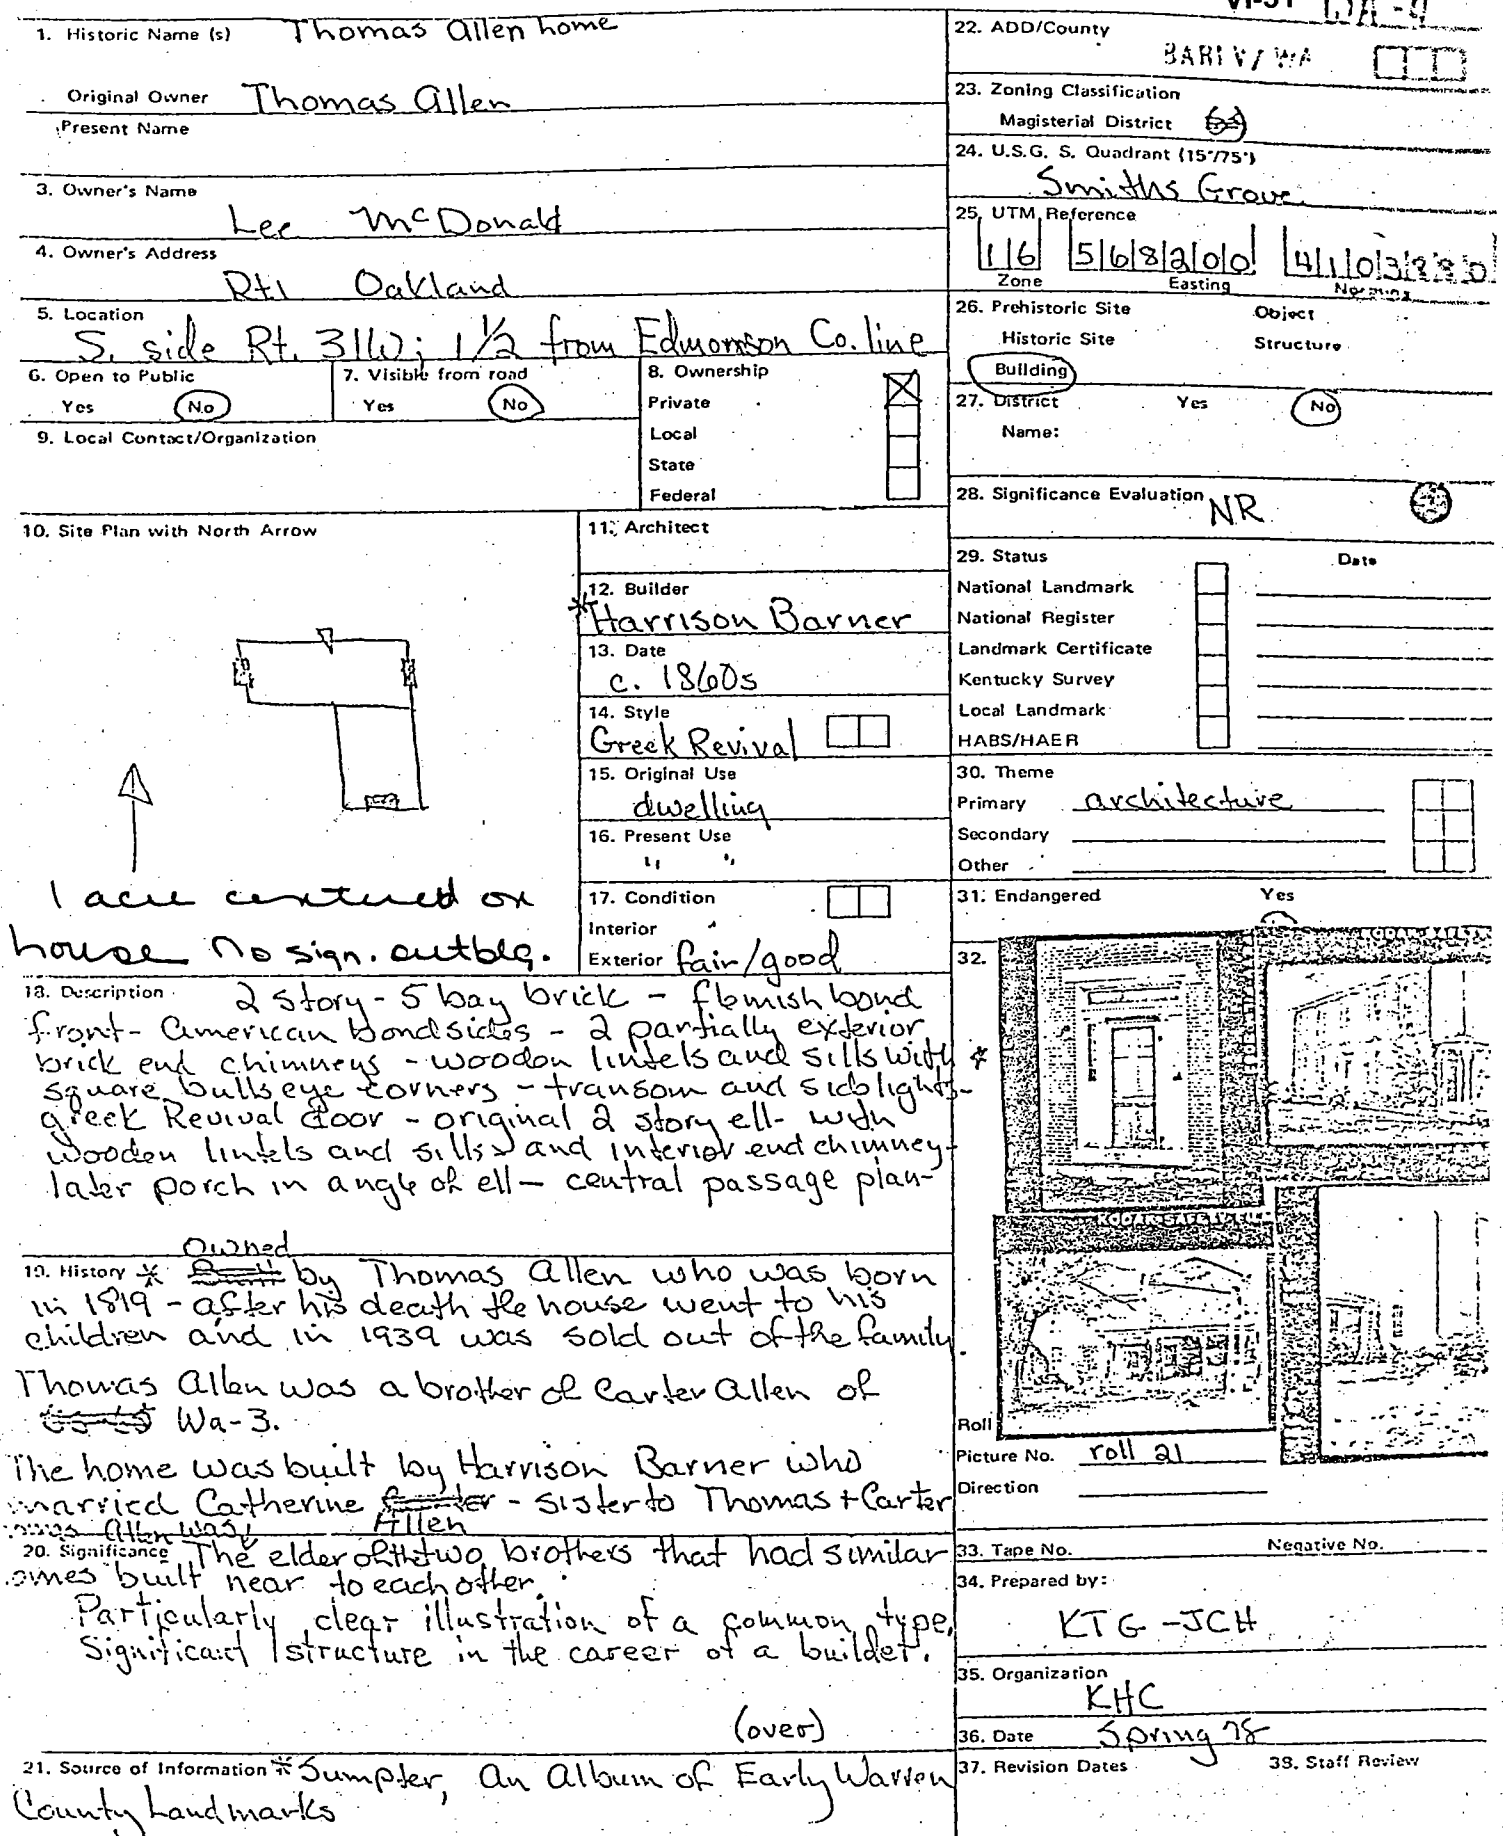 VI-31 WA-4
1. Historic Name (s) Thomas Allen home
Original Owner Thomas Allen
Present Name
3. Owner's Name
Lee McDonald
4. Owner's Address
Rt1 Oakland
5. Location
S. side Rt. 31W; 1 1/2 from Edmonson Co. line
6. Open to Public
Yes No
7. Visible from road
Yes No
8. Ownership
Private
Local
State
Federal
9. Local Contact/Organization
10. Site Plan with North Arrow
1 acre centered on
house no sign. outbldg.
11. Architect
12. Builder
*Harrison Barner
13. Date
c. 1860s
14. Style
Greek Revival
15. Original Use
dwelling
16. Present Use
" "
17. Condition
Interior
Exterior fair/good
18. Description 2 story - 5 bay brick - flemish bond
front - American bond sides - 2 partially exterior
brick end chimneys - wooden lintels and sills with
square bullseye corners - transom and sidelights -
Greek Revival door - original 2 story ell - with
wooden lintels and sills and interior end chimney -
later porch in angle of ell - central passage plan -
Owned
19. History * by Thomas Allen who was born
in 1819 - after his death the house went to his
children and in 1939 was sold out of the family.
Thomas Allen was a brother of Carter Allen of
Wa-3.
The home was built by Harrison Barner who
married Catherine - sister to Thomas + Carter
Allen was Allen
20. Significance The elder of the two brothers that had similar
built near to each other.
Particularly clear illustration of a common type,
Significant structure in the career of a builder.
(over)
21. Source of Information * Sumpter, An Album of Early Warren
County Landmarks
22. ADD/County
23. Zoning Classification
Magisterial District
24. U.S.G. S. Quadrant (15'/75')
Smiths Grove
25. UTM Reference
16 568200
Zone Easting Northing
26. Prehistoric Site Object
Historic Site Structure
Building
27. District Yes No
Name:
28. Significance Evaluation NR
29. Status Date
National Landmark
National Register
Landmark Certificate
Kentucky Survey
Local Landmark
HABS/HAER
30. Theme
Primary architecture
Secondary
Other
31. Endangered Yes
32.
KODAK SAFETY
KODAK SAFETY FILM
Roll
Picture No. roll 21
Direction
33. Tape No. Negative No.
34. Prepared by:
KTG - JCH
35. Organization
KHC
36. Date Spring 78
37. Revision Dates 38. Staff Review